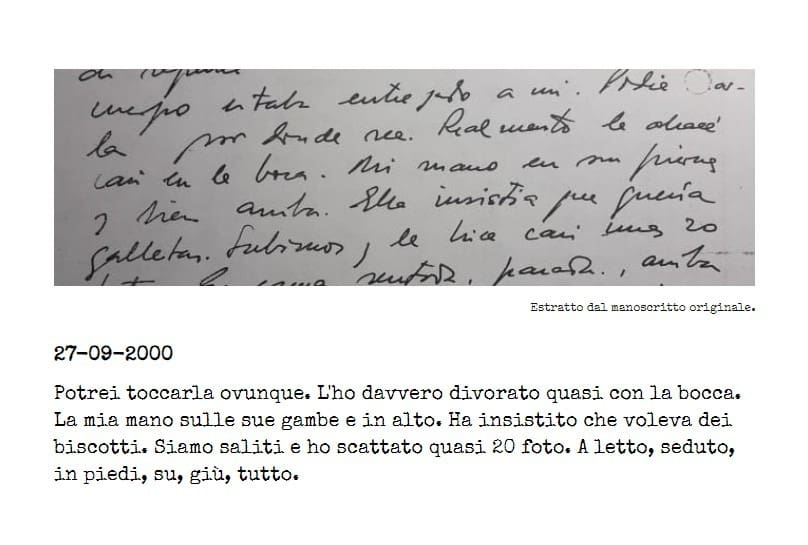 cuerpo estaba entregado a mi. Podía tocar-
la por donde sea. Realmente le abracé
casi en la boca. Mi mano en sus piernas
y bien arriba. Ella insistía que quería
galletas. Subimos y le hice casi unas 20
sentada, parada, arriba
Estratto dal manoscritto originale.
27-09-2000
Potrei toccarla ovunque. L'ho davvero divorato quasi con la bocca.
La mia mano sulle sue gambe e in alto. Ha insistito che voleva dei
biscotti. Siamo saliti e ho scattato quasi 20 foto. A letto, seduto,
in piedi, su, giù, tutto.